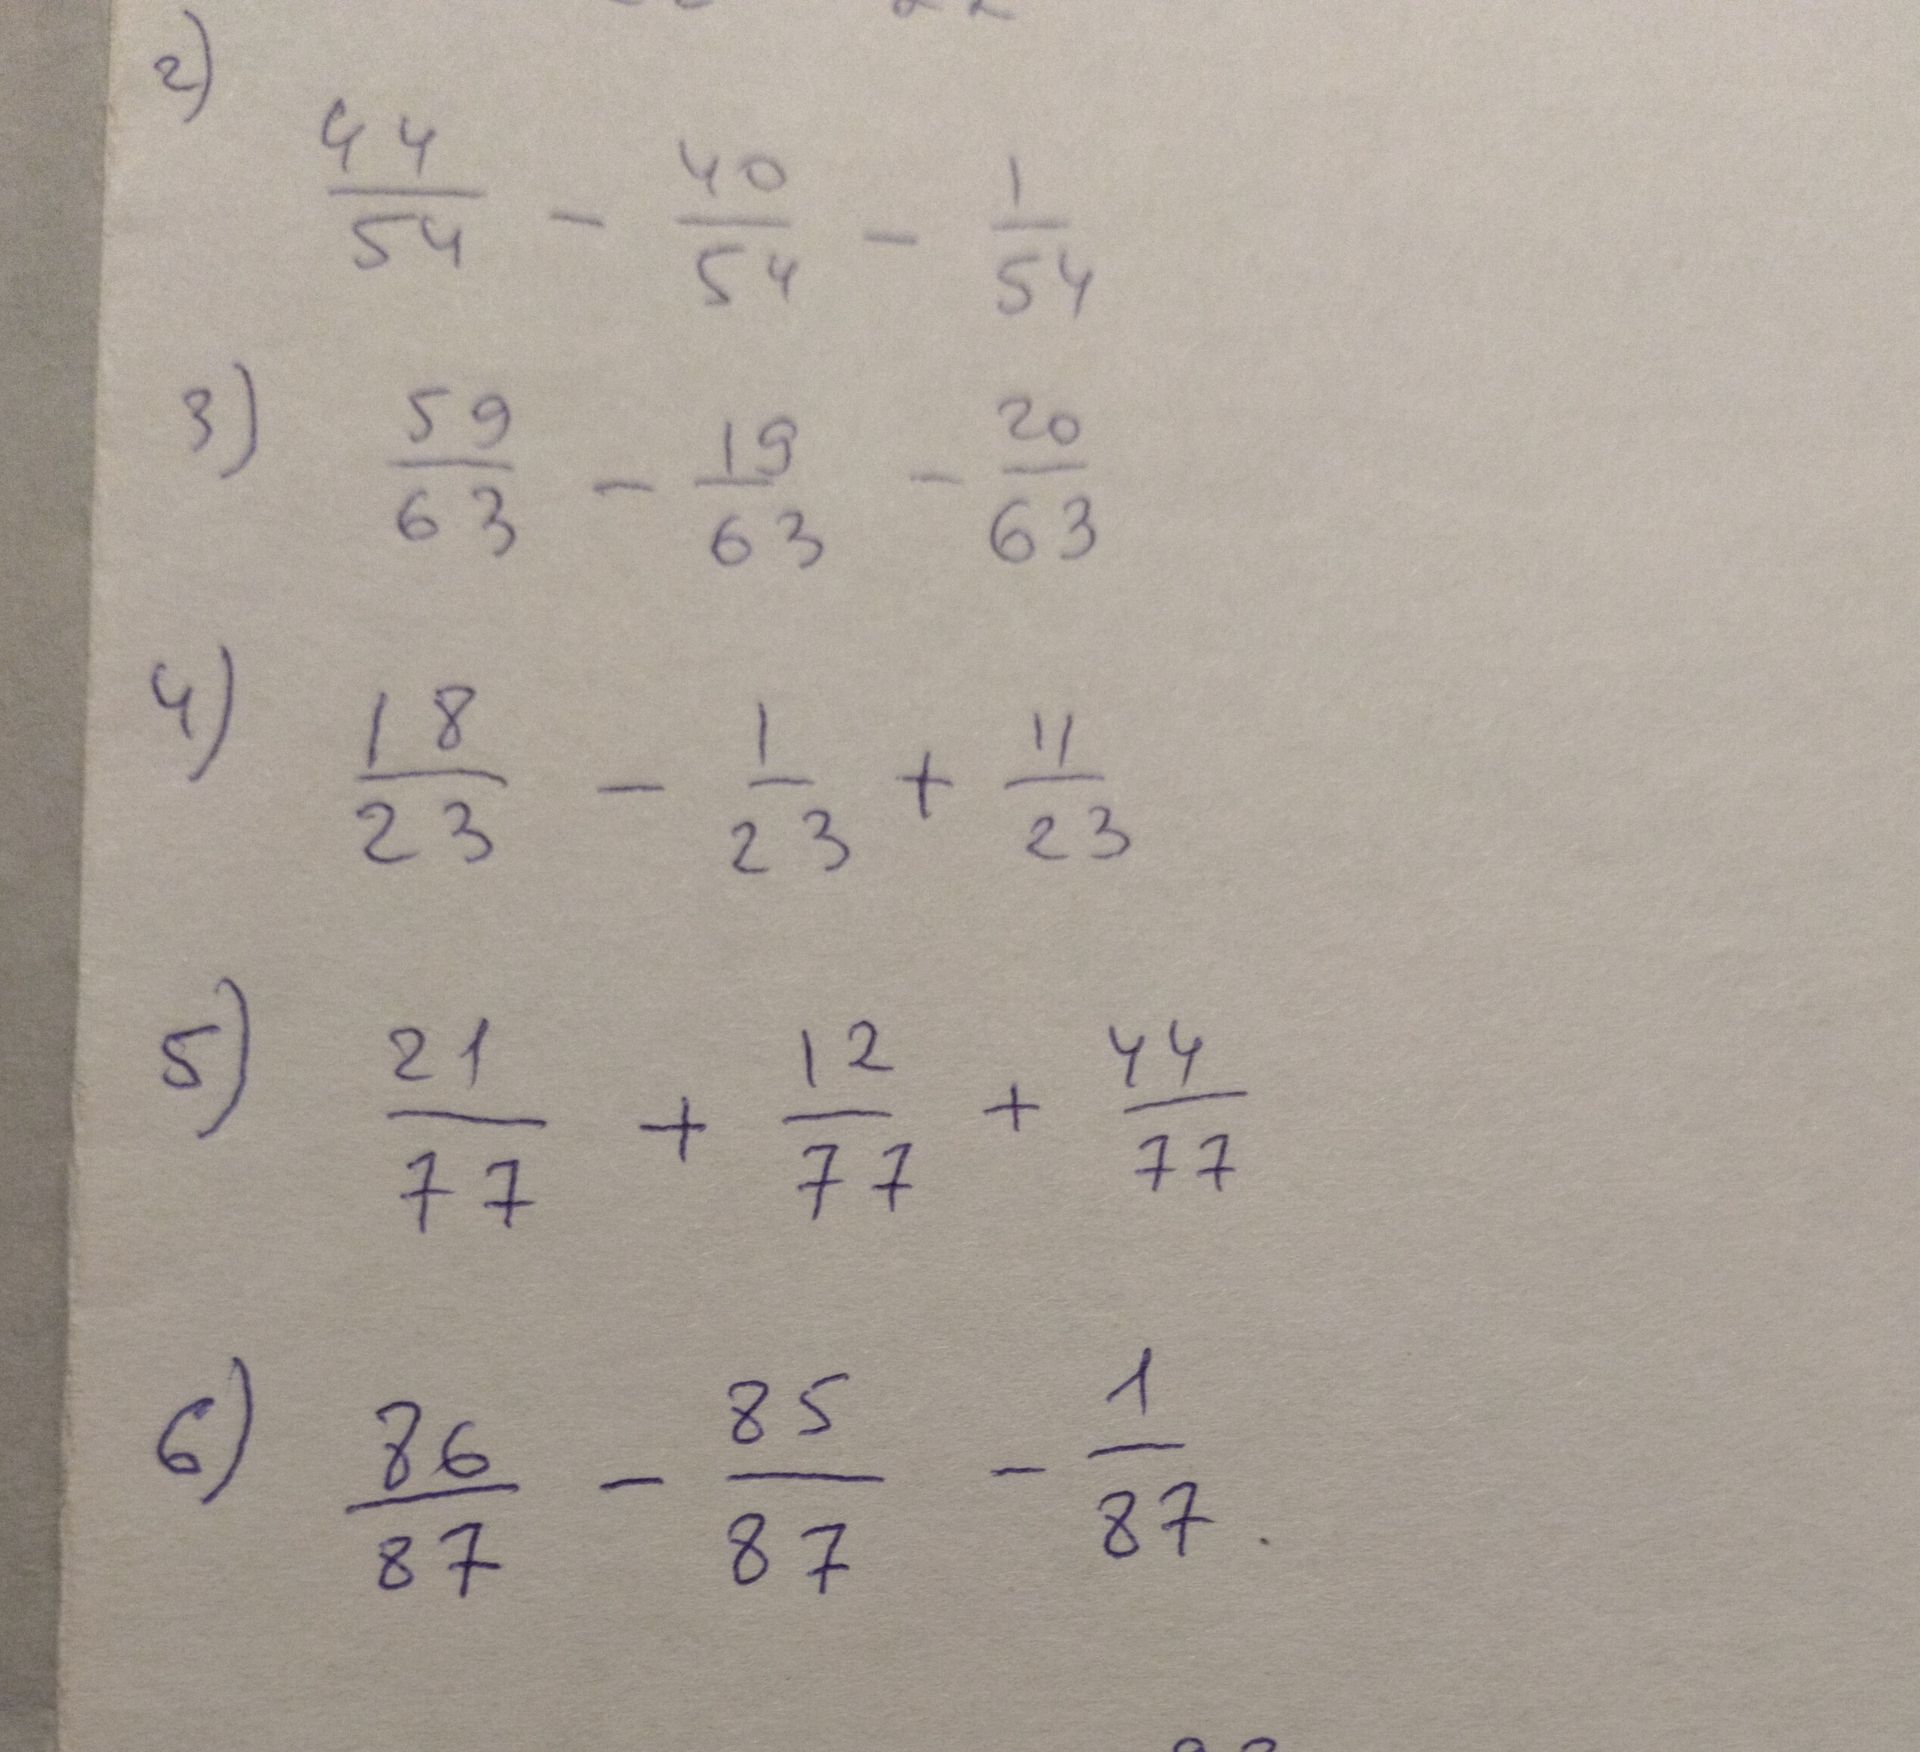 2)
44/54 - 40/54 - 1/54
3) 59/63 - 19/63 - 20/63
4) 18/23 - 1/23 + 11/23
5) 21/77 + 12/77 + 44/77
6) 86/87 - 85/87 - 1/87.